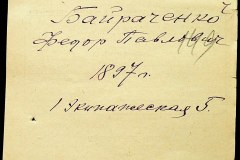 Байраченко
Федор Павлович
1897г.
1 Экипажеская Г.